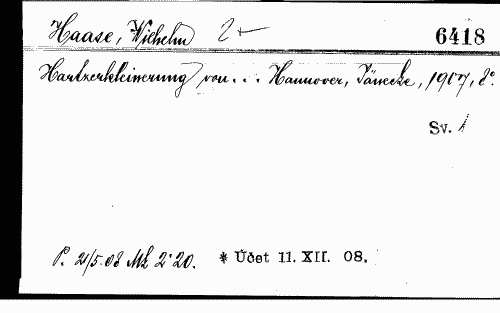 Haase, Wilhelm 2- 6418
Hartzerkleinerung von... Hannover, Jänecke, 1907, 8°.
Sv. 1
P. 21/5.08 Mk 2·20. * Účet 11. XII. 08.